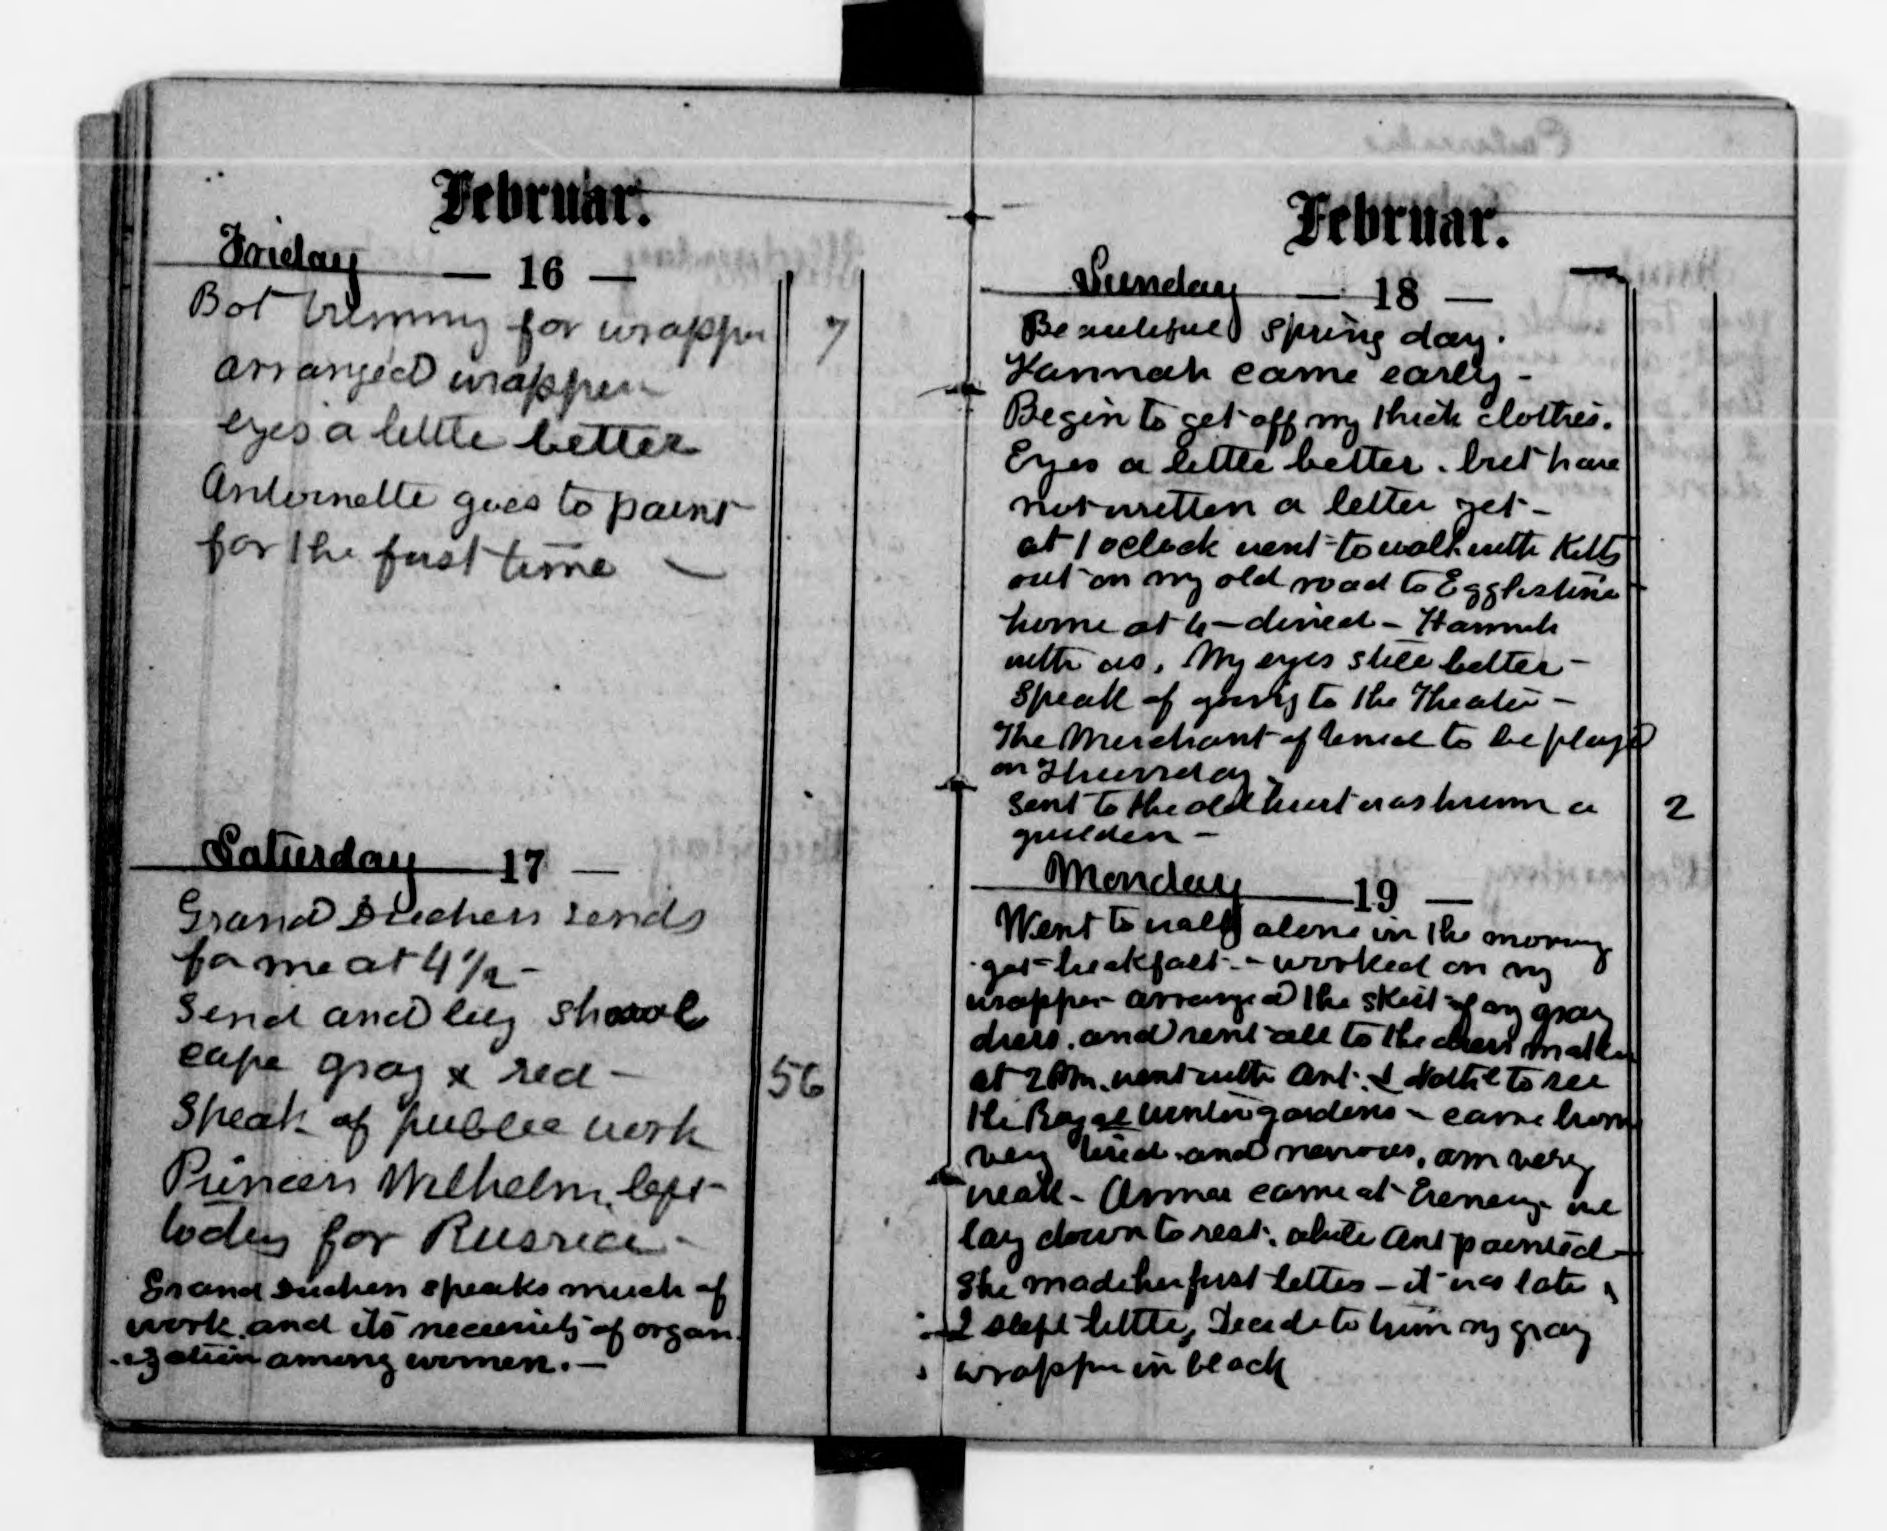 Februar.
Friday — 16 —
Bot trimming for wrapper 7
arranged wrapper
eyes a little better
Antoinette goes to paint
for the first time —
Saturday — 17 —
Grand Duchess sends
for me at 4 1/2 -
Send and buy shawl
cape gray & red - 56
Speak of public work
Princess Wilhelm left
today for Russia -
Grand Duchess speaks much of
work and its necessity of organ
-ization among women. —
Februar.
Sunday — 18 —
Beautiful spring day.
Hannah came early -
Begin to get off my thick clothes.
Eyes a little better. but have
not written a letter yet -
at 1 oclock went to walk with
out on my old road to
home at 4 - dined - Hannah
with us. My eyes still better -
Speak of going to the Theatre -
The Merchant of Venice to be played
on Thursday.
Sent to the old a 2
gulden -
Monday — 19 —
Went to walk alone in the morning
got breakfast - worked on my
wrapper arranged the skirt of my gray
dress. and sent all to the dress maker
at 2 PM. went with Ant. & to see
the Royal winter gardens - came home
very tired and nervous, am very
weak - came at Evening we
lay down to rest. while Ant painted
She made her first letters - it was late &
I slept little, Decide to trim my gray
wrapper in black